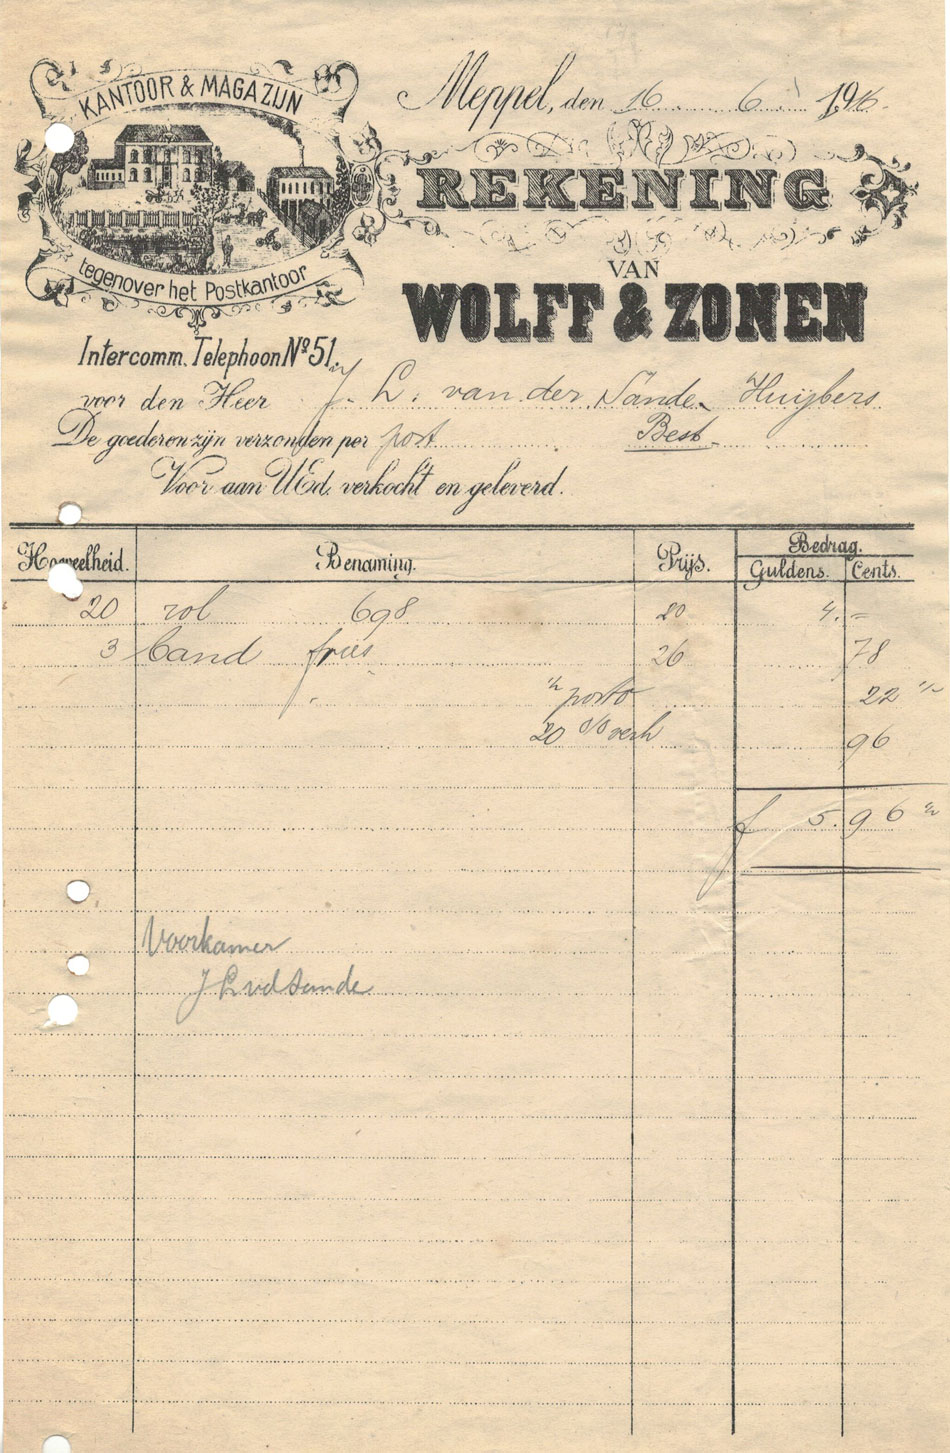 KANTOOR & MAGAZIJN
tegenover het Postkantoor
Meppel, den 16 6 1916.
REKENING
VAN
WOLFF & ZONEN
Intercomm. Telephoon No 51.
voor den Heer J. L. van der Sande - Huijbers
De goederen zijn verzonden per post Best
Voor aan UEd. verkocht en geleverd.
Hoeveelheid. Benaming. Prijs. Bedrag.
Guldens. Cents.
20 rol 698 20 4.-
3 band fries 26 78
½ porto 22 ½
20 o/o verh 96
f 5.96 ½
Voorkamer
J L vd Sande